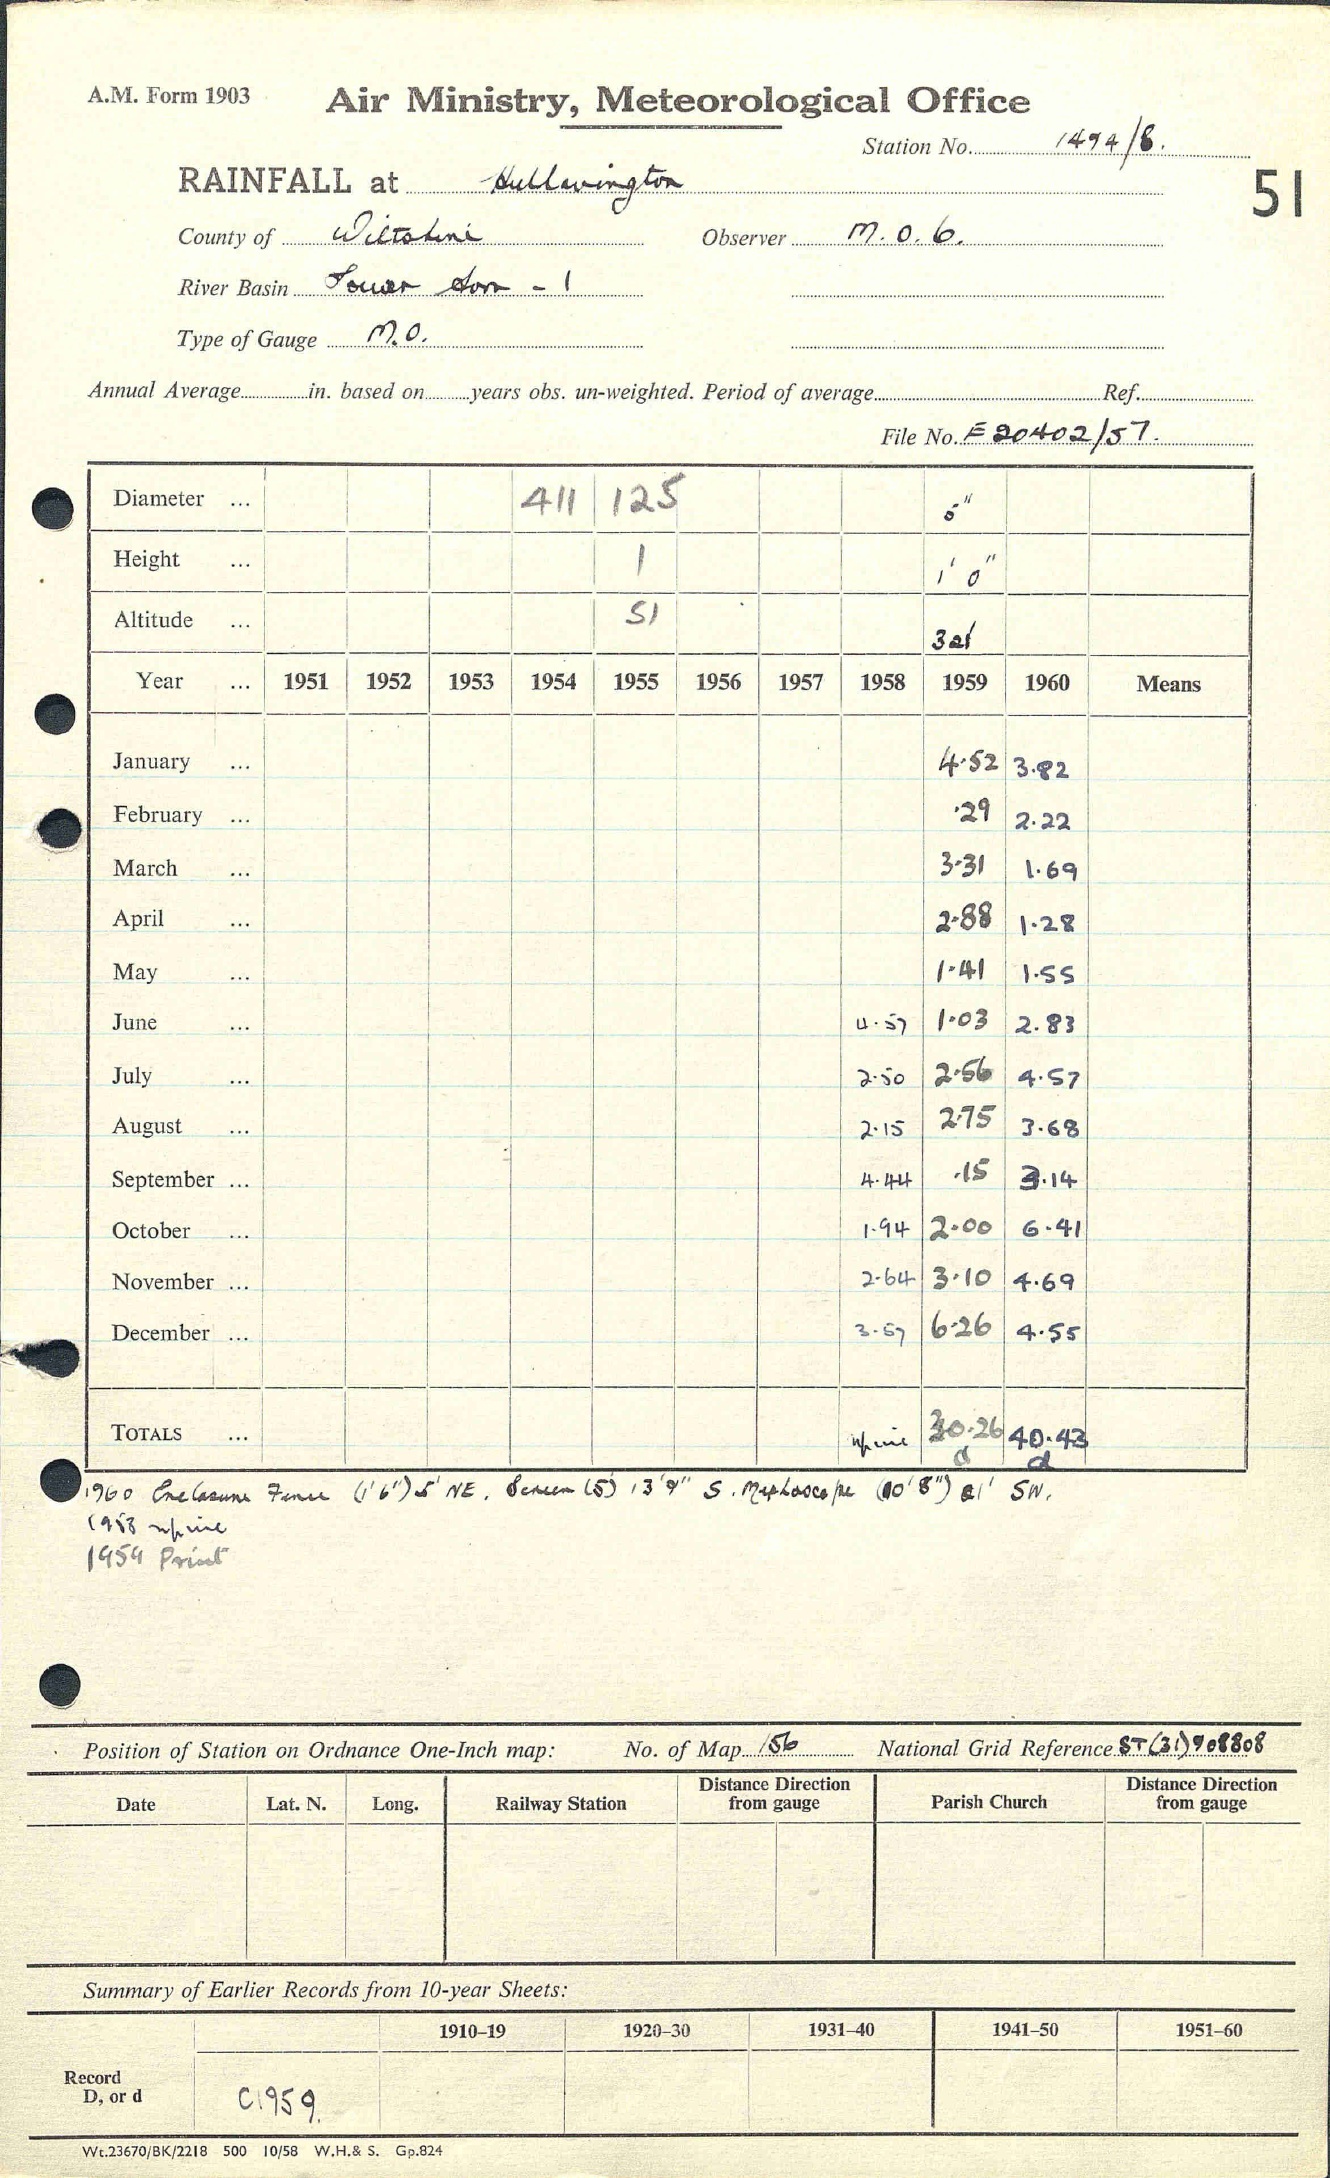 A.M. Form 1903
Air Ministry, Meteorological Office
Station No. 1494/8.
51
RAINFALL at Hullavington
County of Wiltshire Observer M.O.6.
River Basin - 1
Type of Gauge M.O.
Annual Average in. based on years obs. un-weighted. Period of average Ref.
File No. E 20402/57.
Diameter ... 411 125 5"
Height ... 1 1' 0"
Altitude ... 51 321
Year ... 1951 1952 1953 1954 1955 1956 1957 1958 1959 1960 Means
January ... 4.52 3.82
February ... .29 2.22
March ... 3.31 1.69
April ... 2.88 1.28
May ... 1.41 1.55
June ... 4.57 1.03 2.83
July ... 2.50 2.56 4.57
August ... 2.15 2.75 3.68
September ... 4.44 .15 3.14
October ... 1.94 2.00 6.41
November ... 2.64 3.10 4.69
December ... 3.57 6.26 4.55
TOTALS ... 30.26 40.43
d d
1960 Enclosure Fence (1'6") 5' NE. Screen (5') 13'9" S. Nephoscope (10'8") 21' SW.
1958
1959 Print
Position of Station on Ordnance One-Inch map: No. of Map 156 National Grid Reference ST(31)908808
Date Lat. N. Long. Railway Station Distance Direction from gauge Parish Church Distance Direction from gauge
Summary of Earlier Records from 10-year Sheets:
1910–19 1920–30 1931–40 1941–50 1951–60
Record
D, or d C1959.
Wt.23670/BK/2218 500 10/58 W.H.& S. Gp.824